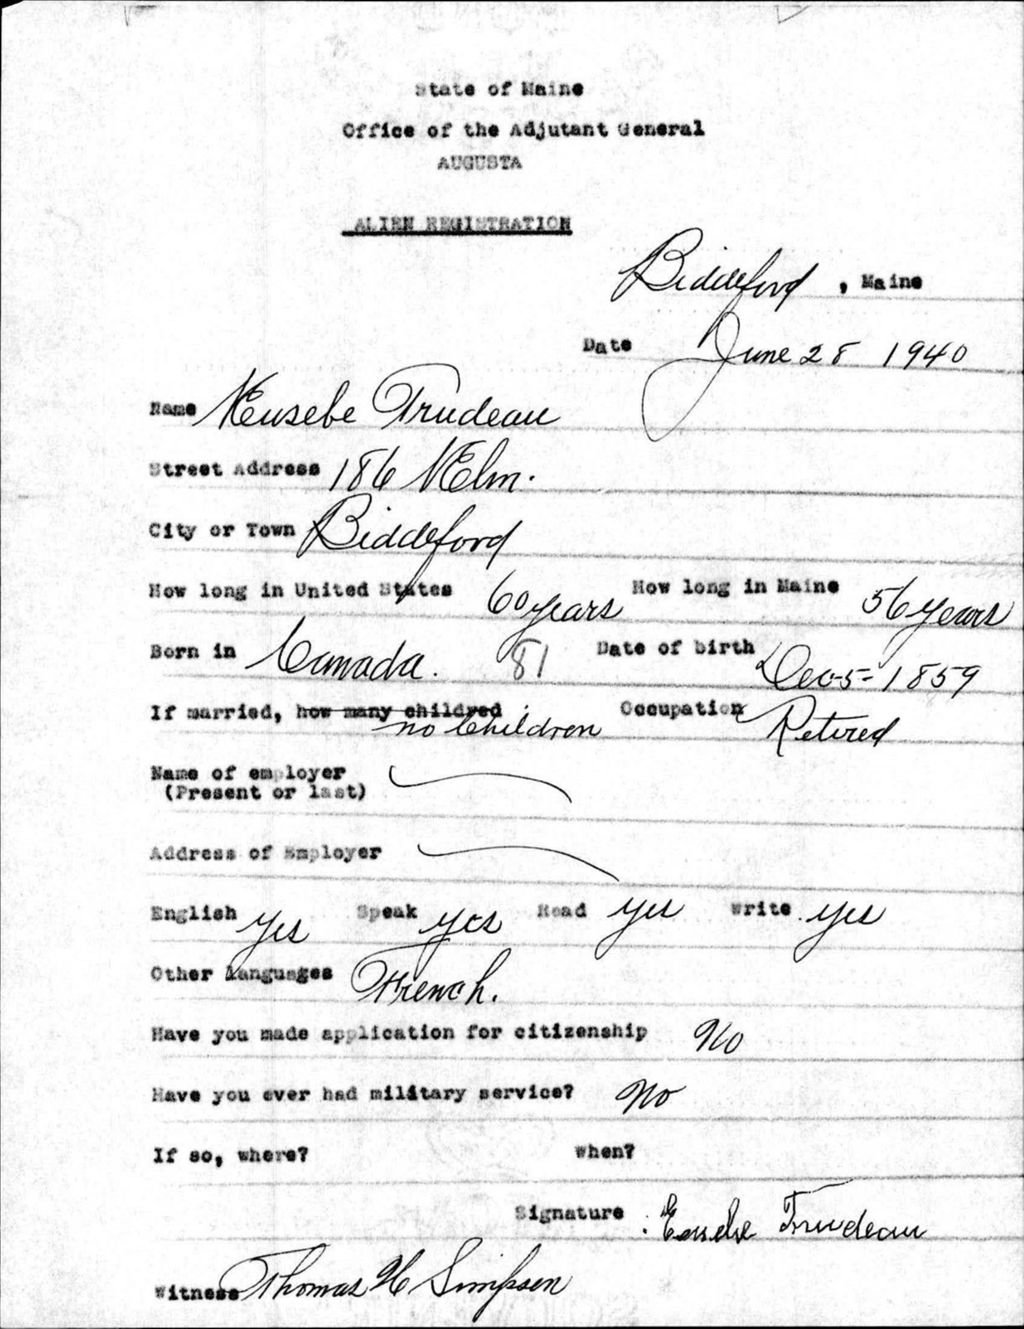 State of Maine
Office of the Adjutant General
AUGUSTA
ALIEN REGISTRATION
Biddeford, Maine
Date June 28 1940
Name Eusebe Trudeau
Street Address 186 Elm.
City or Town Biddeford
How long in United States 60 years How long in Maine 56 years
Born in Canada. 81 Date of birth Dec-5-1859
If married, how many children no Children Occupation Retired
Name of employer
(Present or last)
Address of Employer
English yes Speak yes Read yes Write yes
Other languages French.
Have you made application for citizenship No
Have you ever had military service? No
If so, where? When?
Signature Eusebe Trudeau
Witness Thomas H Simpson